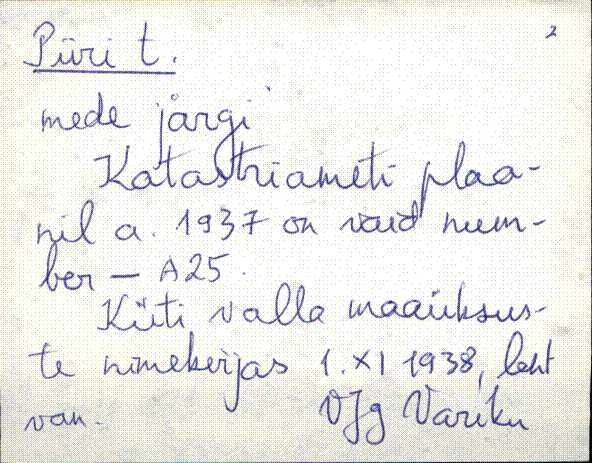 2
Piiri t.
mede järgi
Katastriameti plaa-
nil a. 1937 on vaid num-
ber - A25.
Kiiti valla maaüksus-
te nimekirjas 1.XI 1938, leht
van. VJg Variku